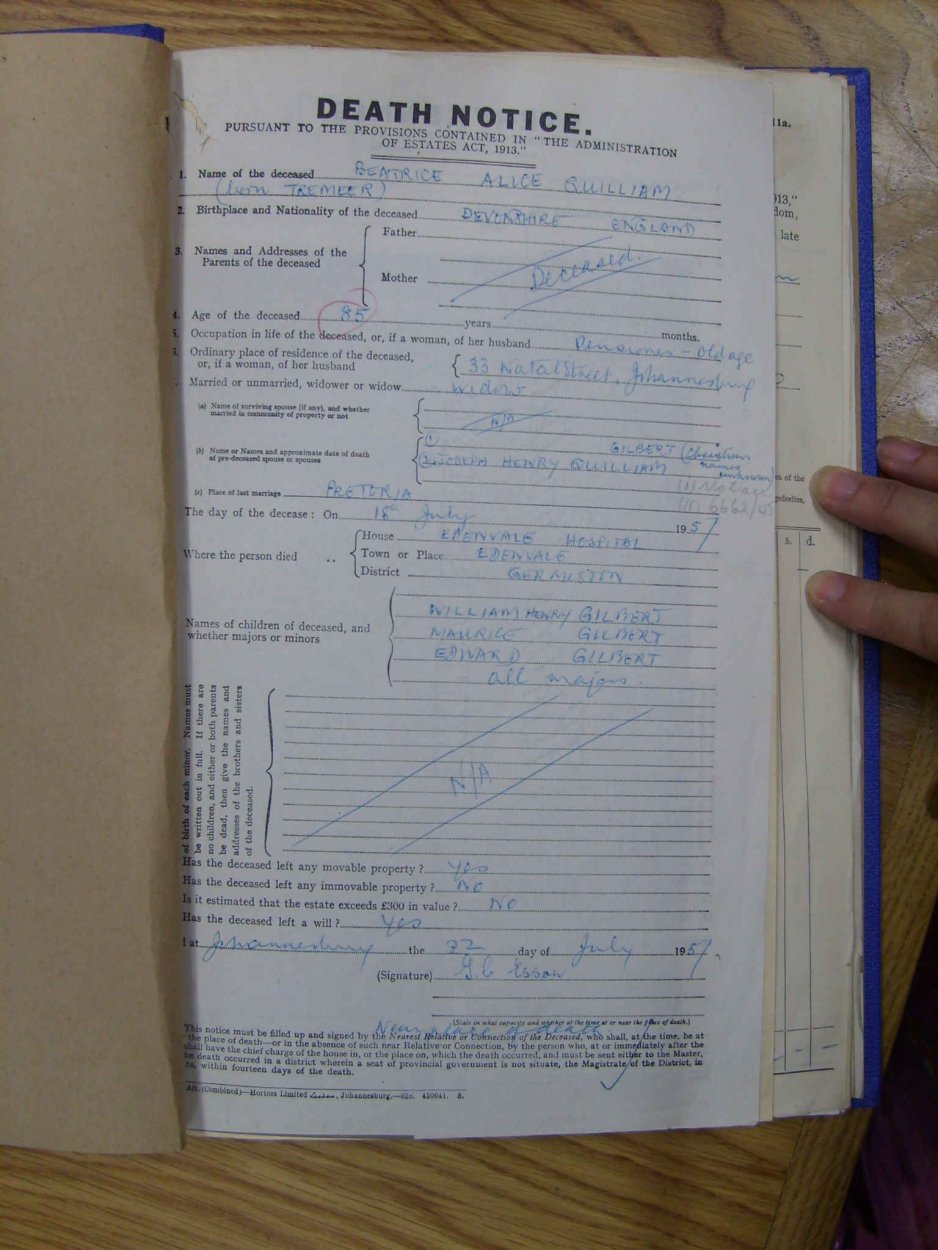 DEATH NOTICE.
PURSUANT TO THE PROVISIONS CONTAINED IN "THE ADMINISTRATION
OF ESTATES ACT, 1913."
1. Name of the deceased BEATRICE ALICE QUILLIAM
(born TREMEER)
2. Birthplace and Nationality of the deceased DEVONSHIRE ENGLAND
Father
3. Names and Addresses of the
Parents of the deceased
Mother
Deceased.
4. Age of the deceased 85 years months.
5. Occupation in life of the deceased, or, if a woman, of her husband Pensioner - Old age
Ordinary place of residence of the deceased,
or, if a woman, of her husband
33 Natal Street, Johannesburg
Married or unmarried, widower or widow widow
(a) Name of surviving spouse (if any), and whether
married in community of property or not
N/A
(b) Name or Names and approximate date of death
of pre-deceased spouse or spouses
(1) GILBERT (Christian names unknown)
(2) JOSEPH HENRY QUILLIAM
(c) Place of last marriage PRETORIA
The day of the decease: On 18th July 1957
Where the person died ..
House EDENVALE HOSPITAL
Town or Place EDENVALE
District GERMISTON
Names of children of deceased, and
whether majors or minors
WILLIAM HENRY GILBERT
MAURICE GILBERT
EDWARD GILBERT
all majors.
of birth of each minor. Names must
be written out in full. If there are
no children, and either or both parents
be dead, then give the names and
addresses of the brothers and sisters
of the deceased.
N/A
Has the deceased left any movable property? Yes
Has the deceased left any immovable property? No
Is it estimated that the estate exceeds £300 in value? No
Has the deceased left a will? Yes
at Johannesburg the 22 day of July 1957.
(Signature) G.C Esson
(State in what capacity and whether at the time at or near the place of death.)
Near place of death
This notice must be filled up and signed by the Nearest Relative or Connection of the Deceased, who shall, at the time, be at
the place of death—or in the absence of such near Relative or Connection, by the person who, at or immediately after the
shall have the chief charge of the house in, or the place on, which the death occurred, and must be sent either to the Master,
he death occurred in a district wherein a seat of provincial government is not situate, the Magistrate of the District, in
to, within fourteen days of the death.
Afr. (Combined)—Hortors Limited, Johannesburg.—628. 450041. S.
11a.
913,"
dom,
late
s. d.